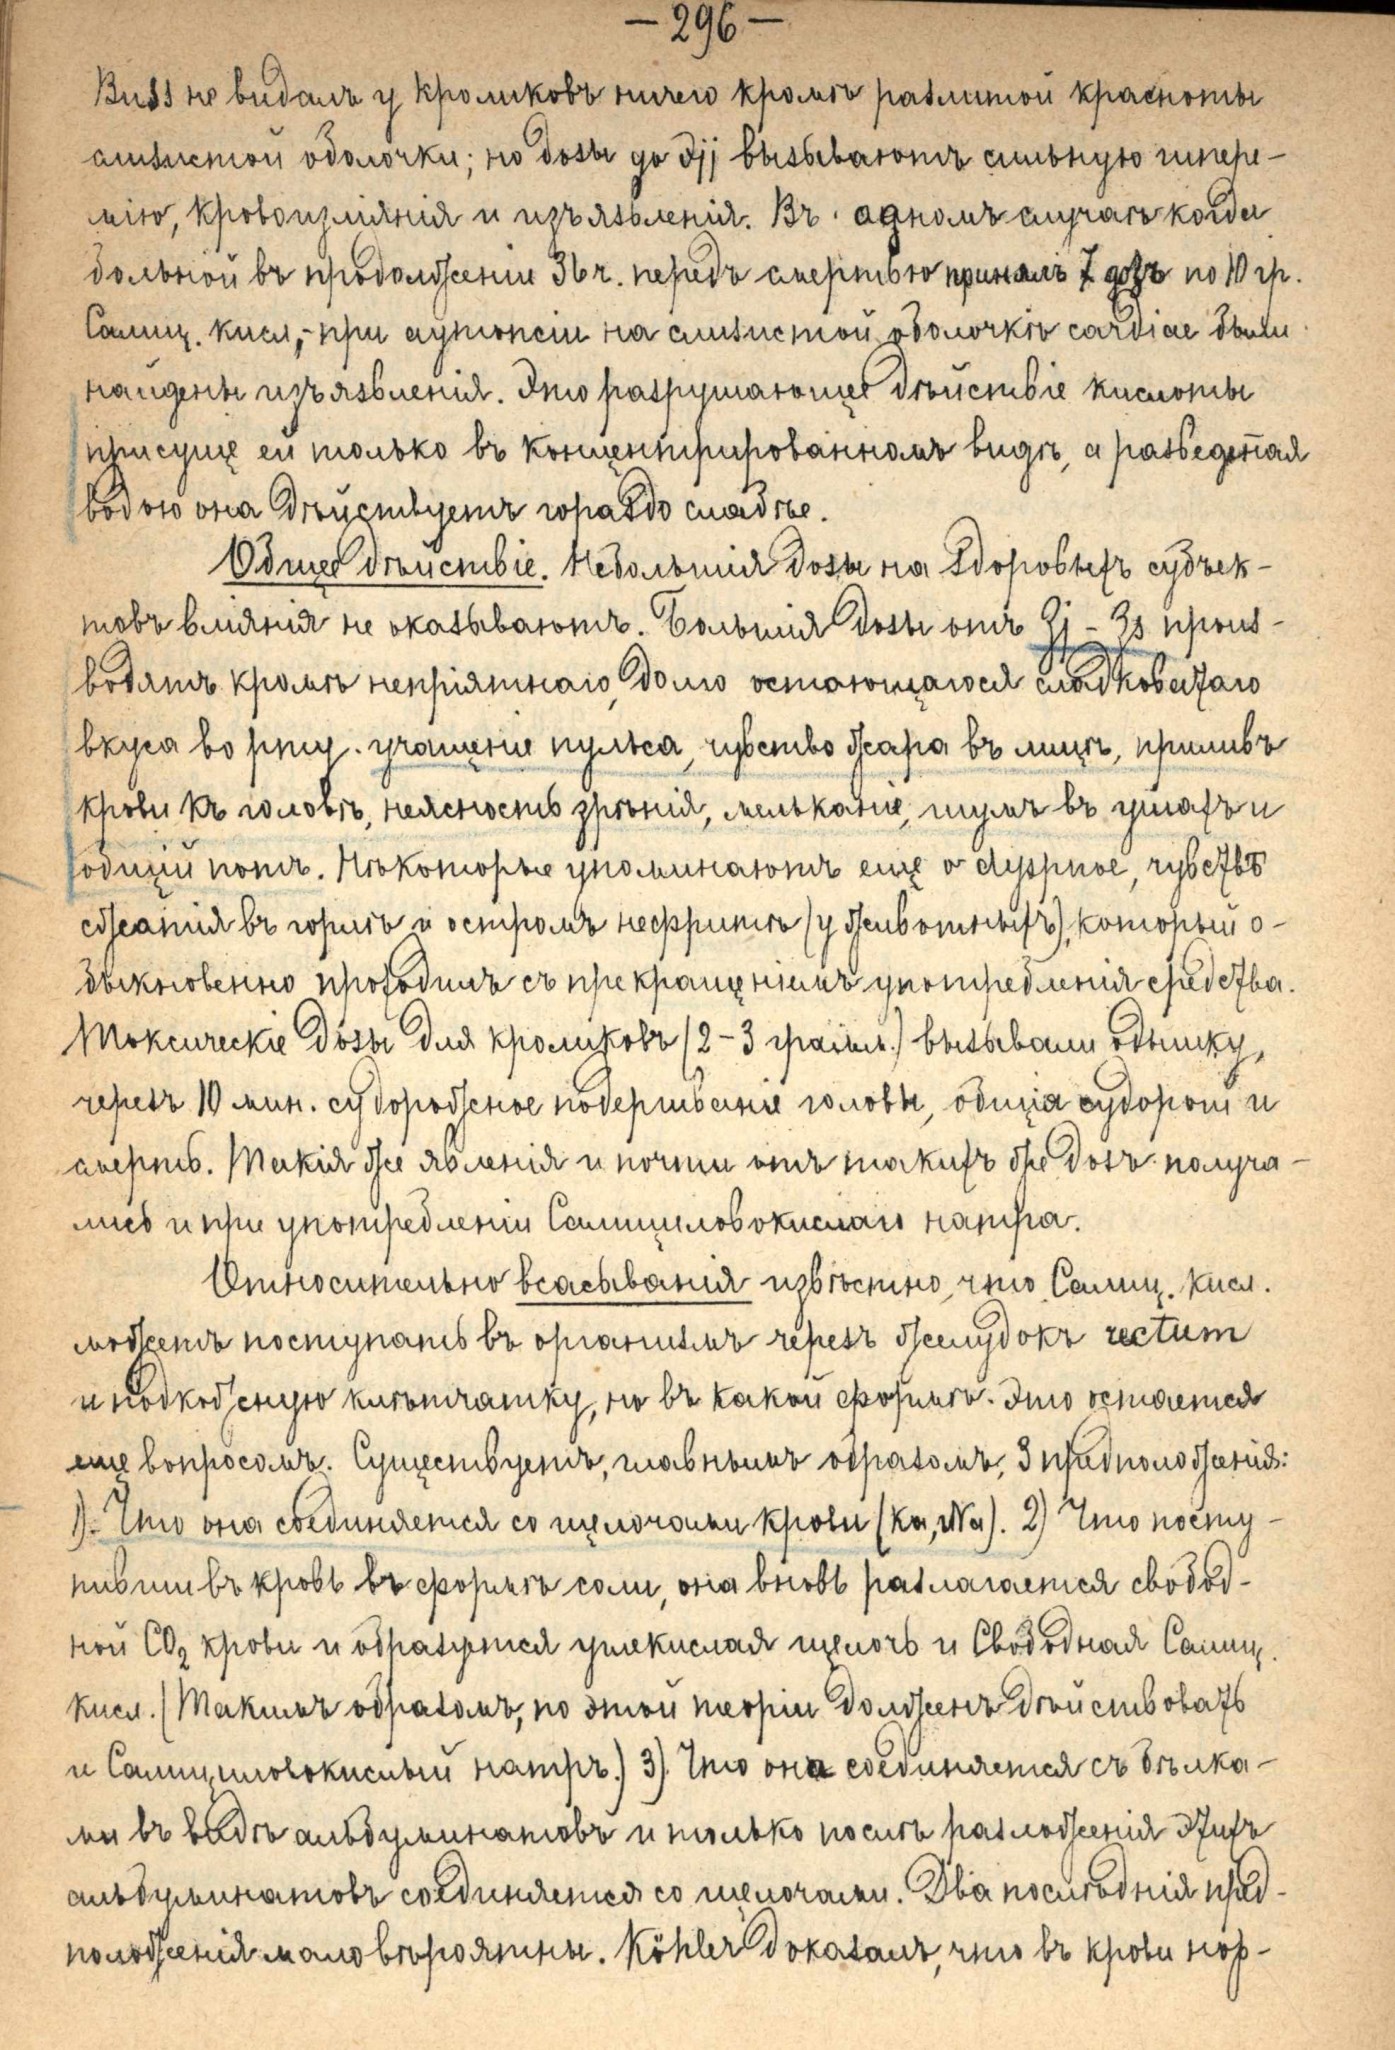 — 296 —
Buss не видалъ у кроликовъ ничего кромѣ разлитой красноты
слизистой оболочки; но дозы до ℈jj вызываютъ сильную гипере-
мію, кровоизліянія и изъязвленія. Въ одномъ случаѣ когда
больной въ продолженіи 36 ч. передъ смертью принялъ 7 дозъ по 10 гр.
Салиц. кисл,- при аутопсіи на слизистой оболочкѣ cardiae были
найдены изъязвленія. Это разрушающее дѣйствіе кислоты
присуще ей только въ концентрированномъ видѣ, а разведенная
водою она дѣйствуетъ гораздо слабѣе.
Общее дѣйствіе. Небольшія дозы на здоровыхъ субъек-
товъ вліянія не оказываютъ. Большія дозы отъ ʒj - ʒs произ-
водятъ кромѣ непріятнаго, долго остающагося сладковатаго
вкуса во рту. учащеніе пульса, чувство жара въ лицѣ, приливъ
крови къ головѣ, неясность зрѣнія, мельканіе, шумъ въ ушахъ и
общій потъ. Нѣкоторые упоминаютъ еще о dyspnoe, чувствѣ
сжатія въ горлѣ и остромъ нефритѣ (у животныхъ), который о-
быкновенно проходилъ съ прекращеніемъ употребленія средства.
Токсическіе дозы для кроликовъ (2-3 грамм.) вызывали одышку,
черезъ 10 мин. судорожное подергиваніе головы, общія судороги и
смерть. Такія же явленія и почти отъ такихъ же дозъ получа-
лись и при употребленіи Салициловокислаго натра.
Относительно всасыванія извѣстно, что Салиц. кисл.
можетъ поступать въ организмъ черезъ желудокъ rectum
и подкожную клѣтчатку, но въ какой формѣ. Это остается
еще вопросомъ. Существуетъ, главнымъ образомъ, 3 предположенія:
1). Что она соединяется со щелочами крови (Ka, Na). 2) Что посту-
пивши въ кровь въ формѣ соли, она вновь разлагается свобод-
ной CO2 крови и образуется углекислая щелочь и Свободная Салиц.
кисл. (Такимъ образомъ, по этой теоріи долженъ дѣйствовать
и Салициловокислый натръ.) 3). Что она соединяется съ бѣлка-
ми въ видѣ альбуминатовъ и только послѣ разложенія этихъ
альбуминатовъ соединяется со щелочами. Два послѣднія пред-
положенія мало вѣроятны. Köhler доказалъ, что въ крови нор-